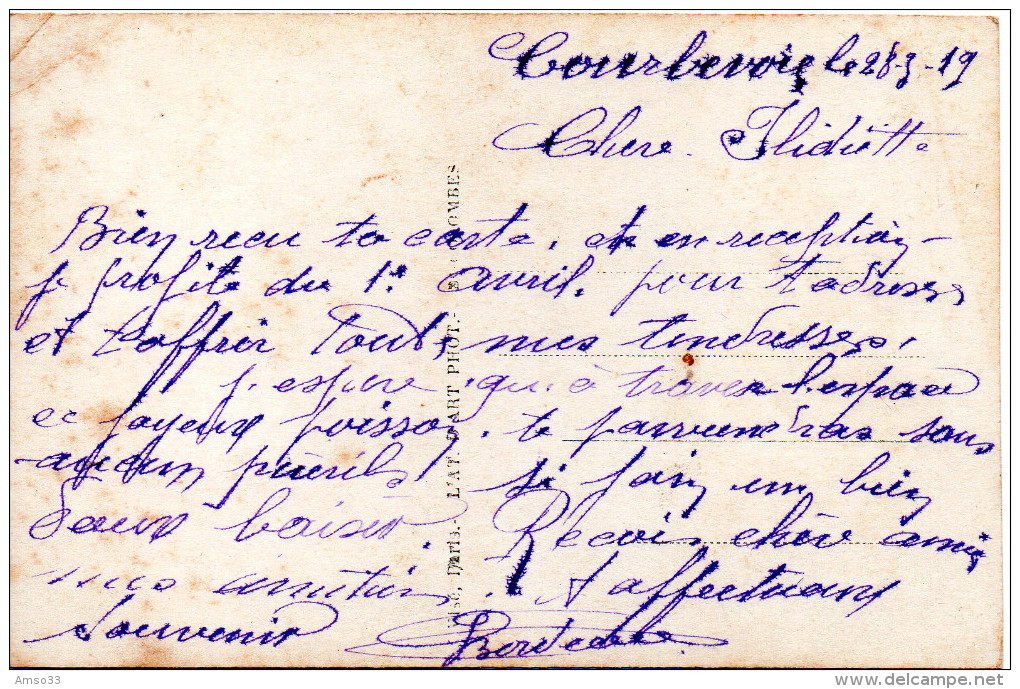 Courbevoie le 28-3-19
Chere
Bien recu ta carte, et en reception
je profite du 1er avril, pour t'adresser
et t'offrir toute mes tendresses,
j'espere, qui à travers l'espace
ce joyeux poisson, te parviendras sans
aucun
doux baiser. Recois chère amie
mes amitiés. & affectueux
souvenir
L'AT. D'ART PHOT.- OMBES
Paris.-
Amso33
www.delcampe.net